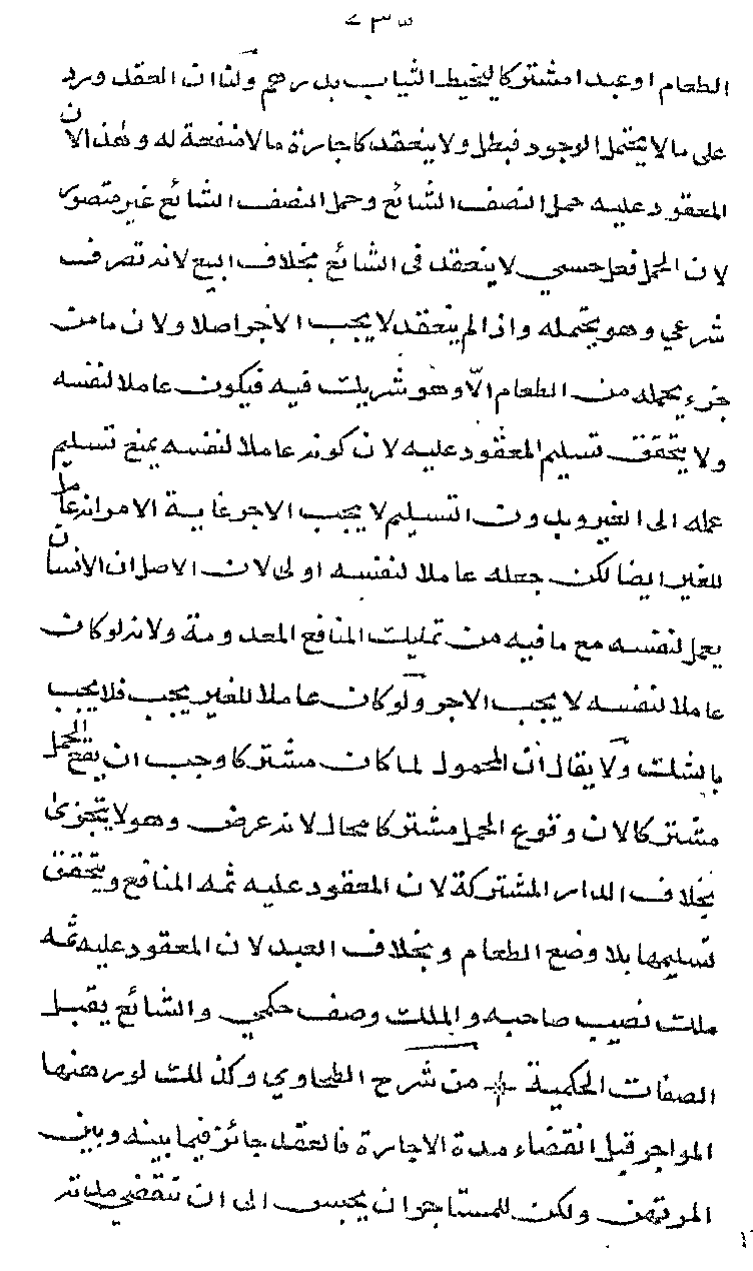 الطعام او عبدا مشتركا ليخيط الثياب بدرهم ولنا ان العقد ورد
على ما لا يحتمل الوجود فبطل ولا ينعقد كاجارة ما لا منفعة له وهذا لان
المعقود عليه حمل النصف الشائع وحمل النصف الشائع غير متصور
لان الحمل فعل حسي لا ينعقد فى الشائع بخلاف البيع لانه تصرف
شرعي وهو يحتمله واذا لم ينعقد لا يجب الاجر اصلا ولان ما من
جزء يحمله من الطعام الّا وهو شريك فيه فيكون عاملا لنفسه
ولا يتحقق تسليم المعقود عليه لان كونه عاملا لنفسه يمنع تسليم
عمله الى الغير وبدون التسليم لا يجب الاجر غاية الامر انه عامل
للغير ايضا لكن جعله عاملا لنفسه اولى لان الاصل ان الانسان
يعمل لنفسه مع ما فيه من تمليك المنافع المعدومة ولانه لو كان
عاملا لنفسه لا يجب الاجر ولو كان عاملا للغير يجب فلا يجب
بالشك ولا يقال ان المحمول لما كان مشتركا وجب ان يقع الحمل
مشتركا لان وقوع الحمل مشتركا محال لانه عرض وهو لا يتجزىٰ
بخلاف الدار المشتركة لان المعقود عليه ثمه المنافع ويتحقق
تسليمها بلا وضع الطعام وبخلاف العبد لان المعقود عليه ثمه
ملك نصيب صاحبه والملك وصف حكمي والشائع يقبل
الصفات الحكمية من شرح الطحاوي وكذلك لو رهنها
المواجر قبل انقضاء مدة الاجارة فالعقد جائز فيما بينه وبين
المرتهن ولكن للمستاجر ان يحبس الى ان تنقضي مدته